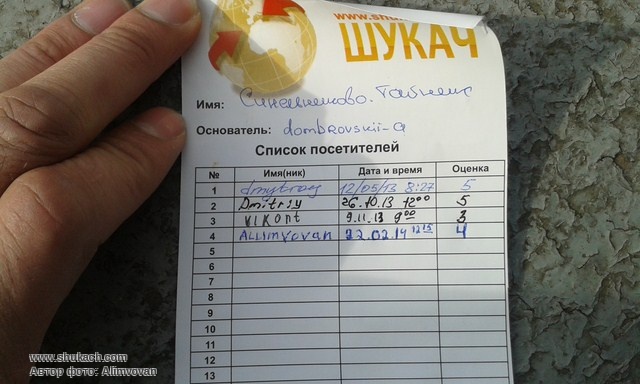 www.shu
ШУКАЧ
Имя: Синельниково. Тайник
Основатель: dombrovskii-a
Список посетителей
№ Имя(ник) Дата и время Оценка
1 dmytrag 12/05/13 8:27 5
2 Dmitriy 26.10.13 12⁰⁰ 5
3 VIKONT 9.11.13 9⁰⁰ 3
4 Alimvovan 22.02.14 12¹⁵ 4
5
6
7
8
9
10
11
12
13
www.shukach.com
Автор фото: Alimvovan